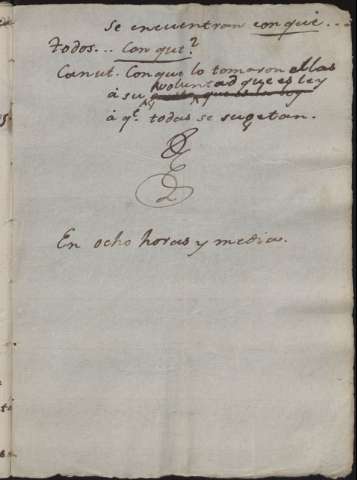 Se encuentran con qui...
Todos... Con que?
Canut. Conque lo tomaron ellas
voluntad que es ley
á su
á q.e todas se sugetan.
En ocho horas y media.